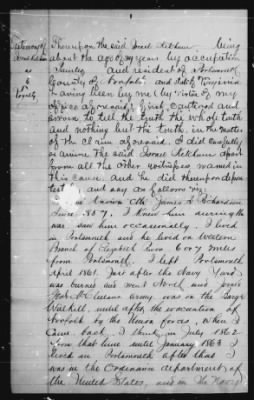 Testimony of
as
to
Loyalty
Thereupon the said Israel Ketchum being
about the age of years by occupation
and resident of Portsmouth
County of Norfolk and State of Virginia
having been by me by virtue of my
office aforesaid first cautioned and
sworn to tell the truth the whole truth
and nothing but the truth, in the matter
of the Claim aforesaid, I did carefully
examine the said Israel Ketchum apart
from all the other witnesses named in
this cause. And he did thereupon depose
testify and say as follows viz:
I have known Mr James A Richardson
Since 1857. I knew him during the
war saw him occasionally. I lived
in Portsmouth and he lived on Western
Branch of Elizabeth River 6 or 7 miles
from Portsmouth. I left Portsmouth
april 1861. Just after the Navy Yard
was burned and went North and joined
McClellans army was on the barge
until after the evacuation of
Norfolk by the Union forces, when I
Came back, I think in July 1862
from that time until January 1863 I
lived in Portsmouth after that I
was in the Ordenance department of
the United States, and in the Navy